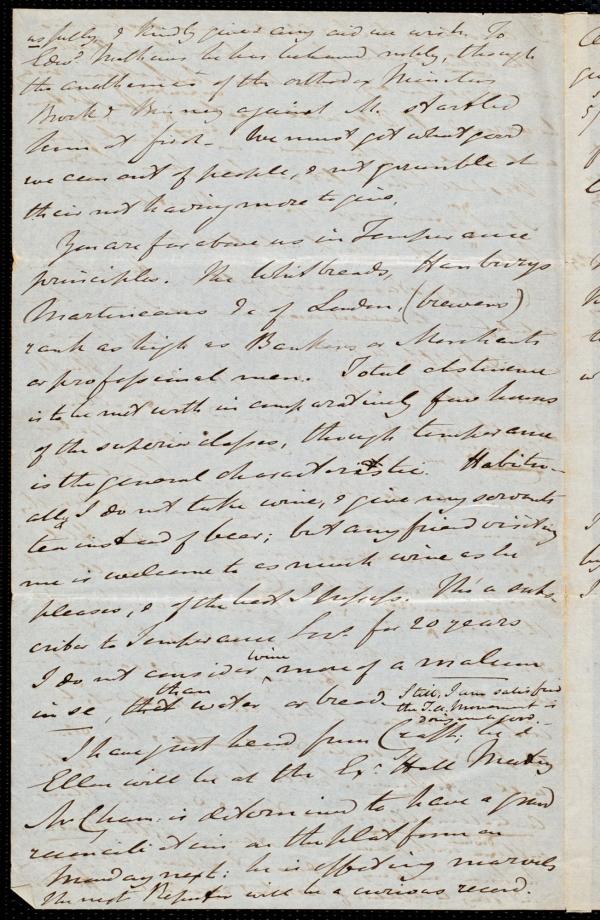 as fully, & kindly gives any aid we wish. To
Edwd. Mathews he has behaved nobly, though
the anathemas of the orthodox Ministers
Brock & Binney against M. startled
him at first. We must get what good
we can out of people, & not grumble at
their not having more to give.
You are far above us in Temperance
principles. The Whitbreads, Hanburys
Martineaus &c of London, (brewers)
rank as high as Bankers or Merchants
or professional men. Total abstinence
is to be met with in comparatively few houses
of the superior classes, though temperance
is the general characteristic. Habitu-
ally I do not take wine, & give my servants
tea instead of beer; but any friend visiting
me is welcome to as much wine as he
pleases, & of the best I possess. Tho' a subs-
criber to Temperance Socs. for 20 years
I do not consider wine more of a malum
in se, than water or bread. Still, I am satisfied
the T.a. Movement is
doing much good.
I have just heard from Craft; he &
Ellen will be at the Exr. Hall Meeting
Mr Cham: is determined to have a grand
reconciliation on the platform on
Monday next: he is effecting marvels
The next Reporter will be a curious record.